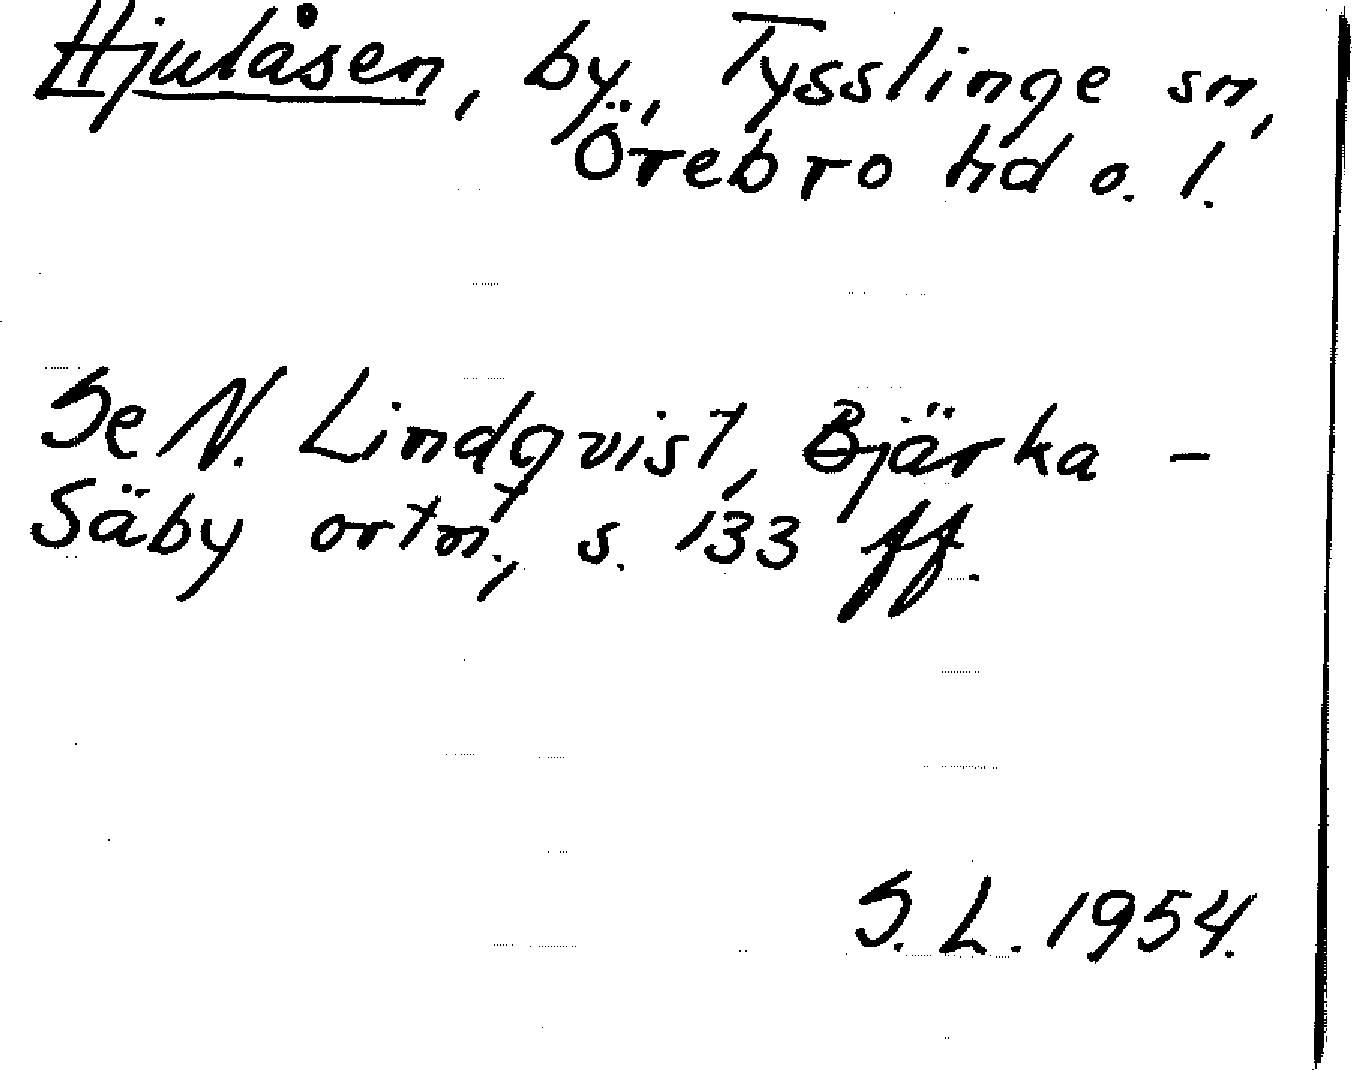 Hjulåsen, by, Tysslinge sn,
Örebro hd o. l.
Se N. Lindqvist, Bjärka -
Säby ortn., s. 133 ff.
S. L. 1954.